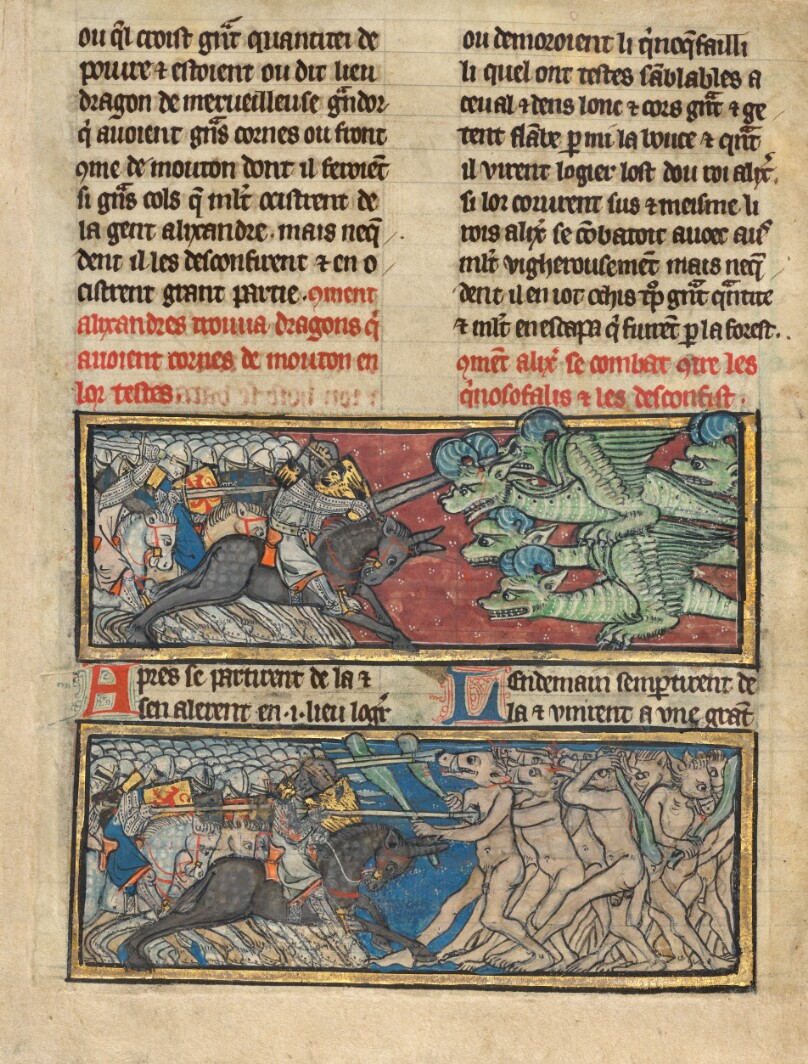 ou q̄l croist gr̄at quantitei de
poiure ⁊ estoient ou dit lieu
dragon de merueilleuse gr̄ndor
q̄ auoient gr̄ns cornes ou front
ꝯme de mouton dont il feroiēt
si gr̄ns cols q̄ ml̄t occistrent de
la gent alixandre. mais neq̄
dent il les desconfirent ⁊ en o
cistrent grant partie. ꝯment
alixandres trouua dragons q̄
auoient cornes de mouton en
lor testes
ou demoroient li q̄noq̄failli
li quel ont testes sāblables a
ceual ⁊ dens lonc ⁊ cors gr̄at ⁊ ge
tent flābe ꝑ mi la bouce ⁊ qn̄t
il virent logier lost dou roi alix̄.
si lor corurent sus ⁊ meisme li
rois alix̄ se cōbatoit auoec aus
ml̄t vigherousemēt mais neq̄
dent il en iot ochis tp̄ gr̄at q̄ntite
⁊ ml̄t en escapa q̄ furrēt ꝑ la forest.
ꝯmēt alix̄ se combat ꝯtre les
q̄nosofalis ⁊ les desconfist.
Apres se partirent de la ⁊
sen alerent en .i. lieu logr̄
Lendemain se mp̄tirent de
la ⁊ vinrent a vne grāt